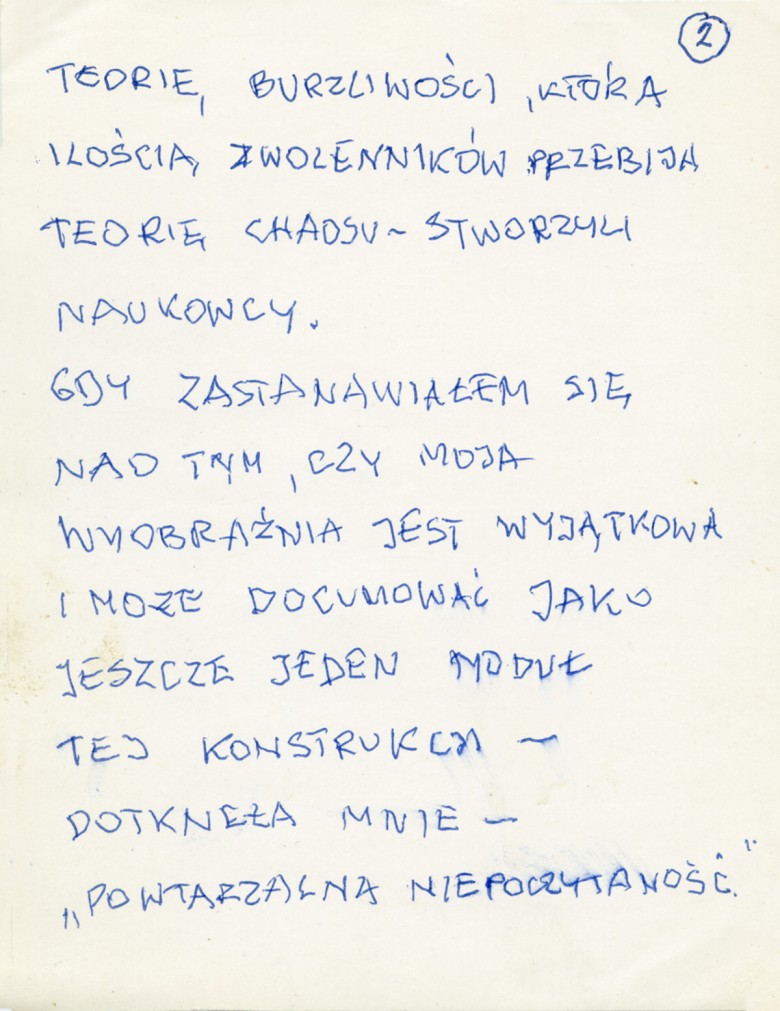 2
TEORIĘ BURZLIWOŚCI, KTÓRA
ILOŚCIĄ ZWOLENNIKÓW PRZEBIJA
TEORIĘ CHAOSU ~ STWORZYLI
NAUKOWCY.
GDY ZASTANAWIAŁEM SIĘ
NAD TYM, CZY MOJA
WYOBRAŹNIA JEST WYJĄTKOWA
I MOŻE DOCUMOWAĆ JAKO
JESZCZE JEDEN MODUŁ
TEJ KONSTRUKCJI —
DOTKNĘŁA MNIE —
„POWTARZALNA NIEPOCZYTALNOŚĆ."